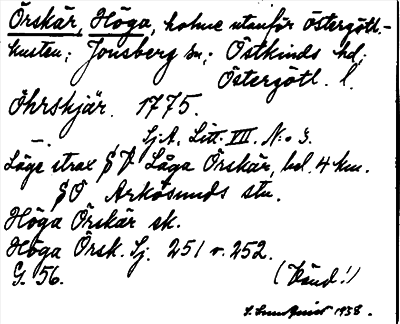 Örskär, Höga, holme utanför Östergötl.-
kusten; Jonsberg sn; Östkinds hd;
Östergötl. l.
Öhrskjär. 1775.
Sj.A. Litt. VII. No 3.
Läge strax SO Låga Örskär, bel. 4 km.
SO Arkösunds stn.
Höga Örskär sk.
Höga Örsk. Sj. 251 o. 252.
G. 56.
(Vänd!)
1938.